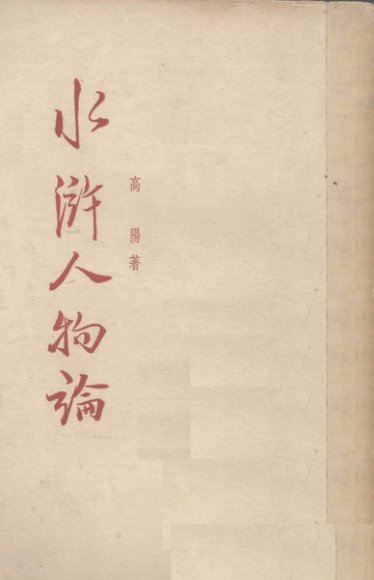 水滸人物論
高陽著